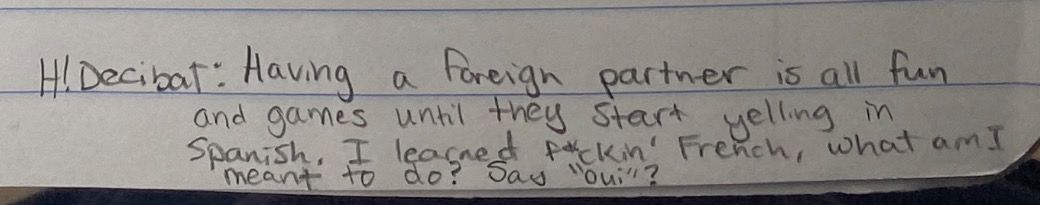 H!Decibat: Having a foreign partner is all fun
and games until they start yelling in
Spanish. I learned f*ckin' French, what am I
meant to do? Say "oui"?